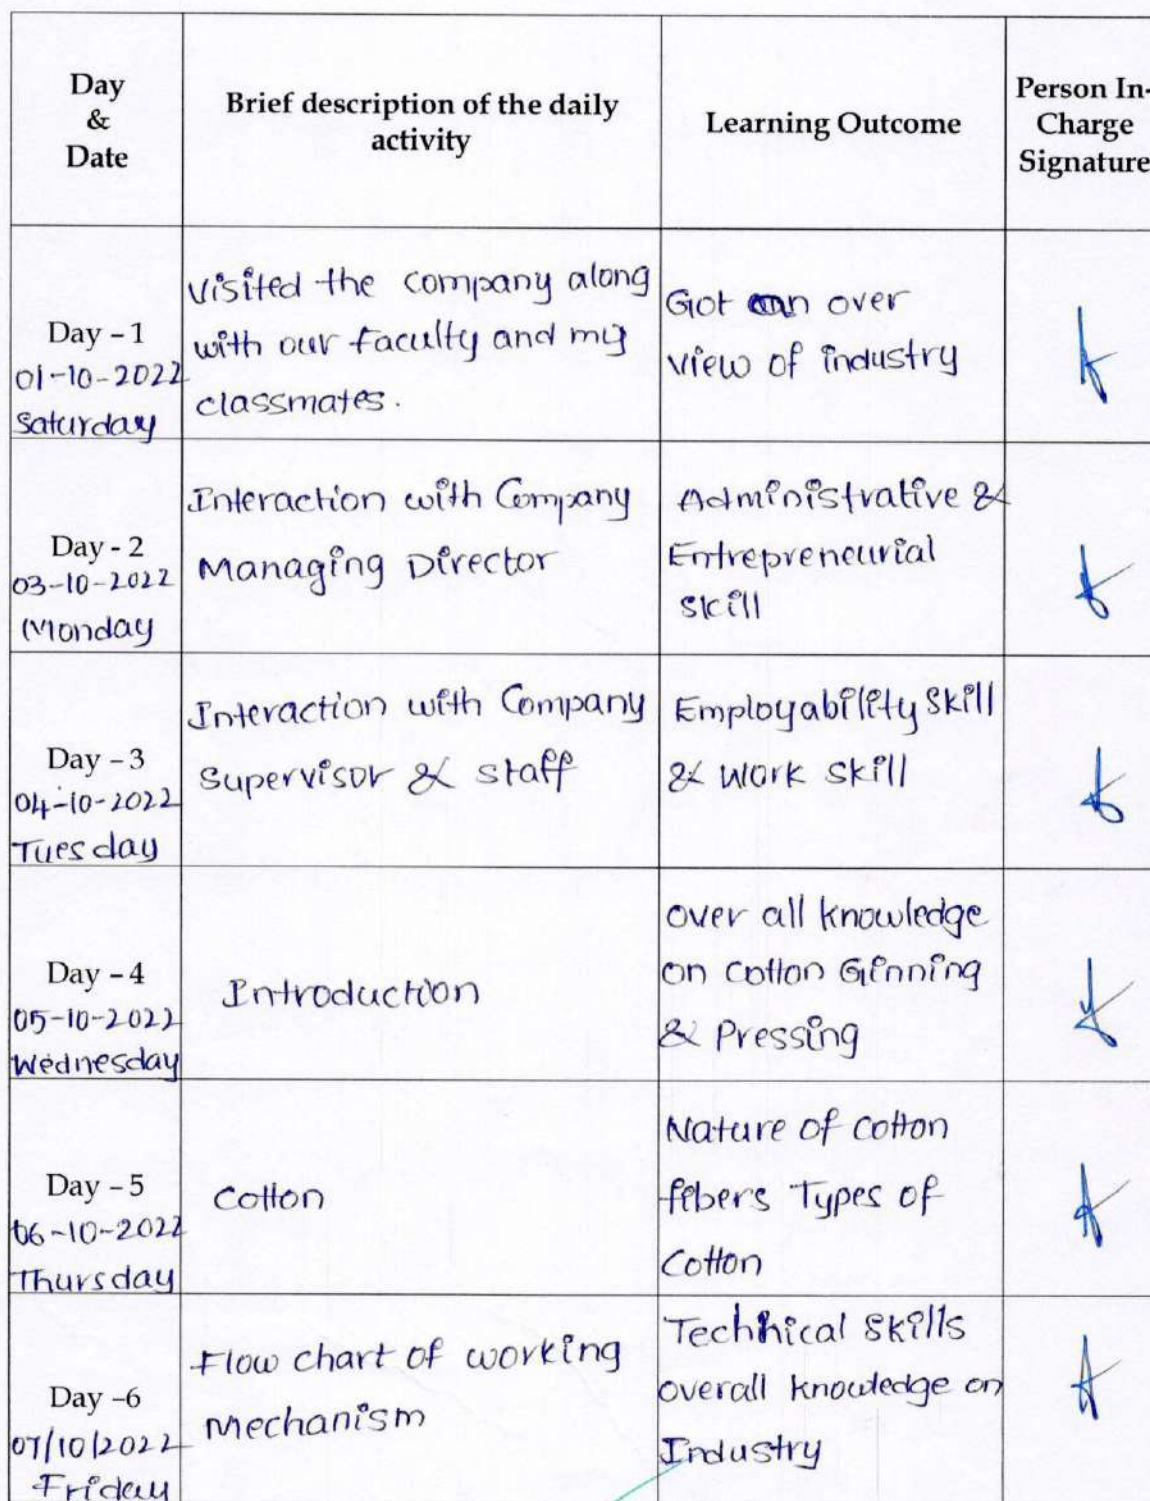 Day
&
Date
Brief description of the daily
activity
Learning Outcome
Person In-
Charge
Signature
Day - 1
01-10-2022
Saturday
Visited the company along
with our faculty and my
classmates.
Got an over
view of industry
Day - 2
03-10-2022
Monday
Interaction with Company
Managing Director
Administrative &
Entrepreneurial
skill
Day - 3
04-10-2022
Tuesday
Interaction with Company
Supervisor & staff
Employability skill
& work skill
Day - 4
05-10-2022
Wednesday
Introduction
over all knowledge
on cotton Ginning
& Pressing
Day - 5
06-10-2022
Thursday
Cotton
Nature of cotton
fibers Types of
Cotton
Day -6
07/10/2022
Friday
Flow chart of working
Mechanism
Technical skills
overall knowledge on
Industry